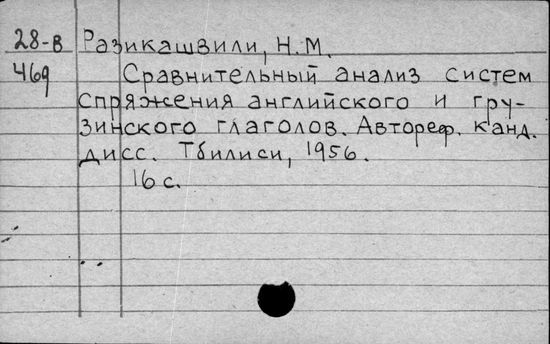 28-в Разикашвили, Н.М.
469 Сравнительный анализ систем
спряжения английского и гру-
зинского глаголов. Автореф. канд.
дисс. Тбилиси, 1956.
16 с.